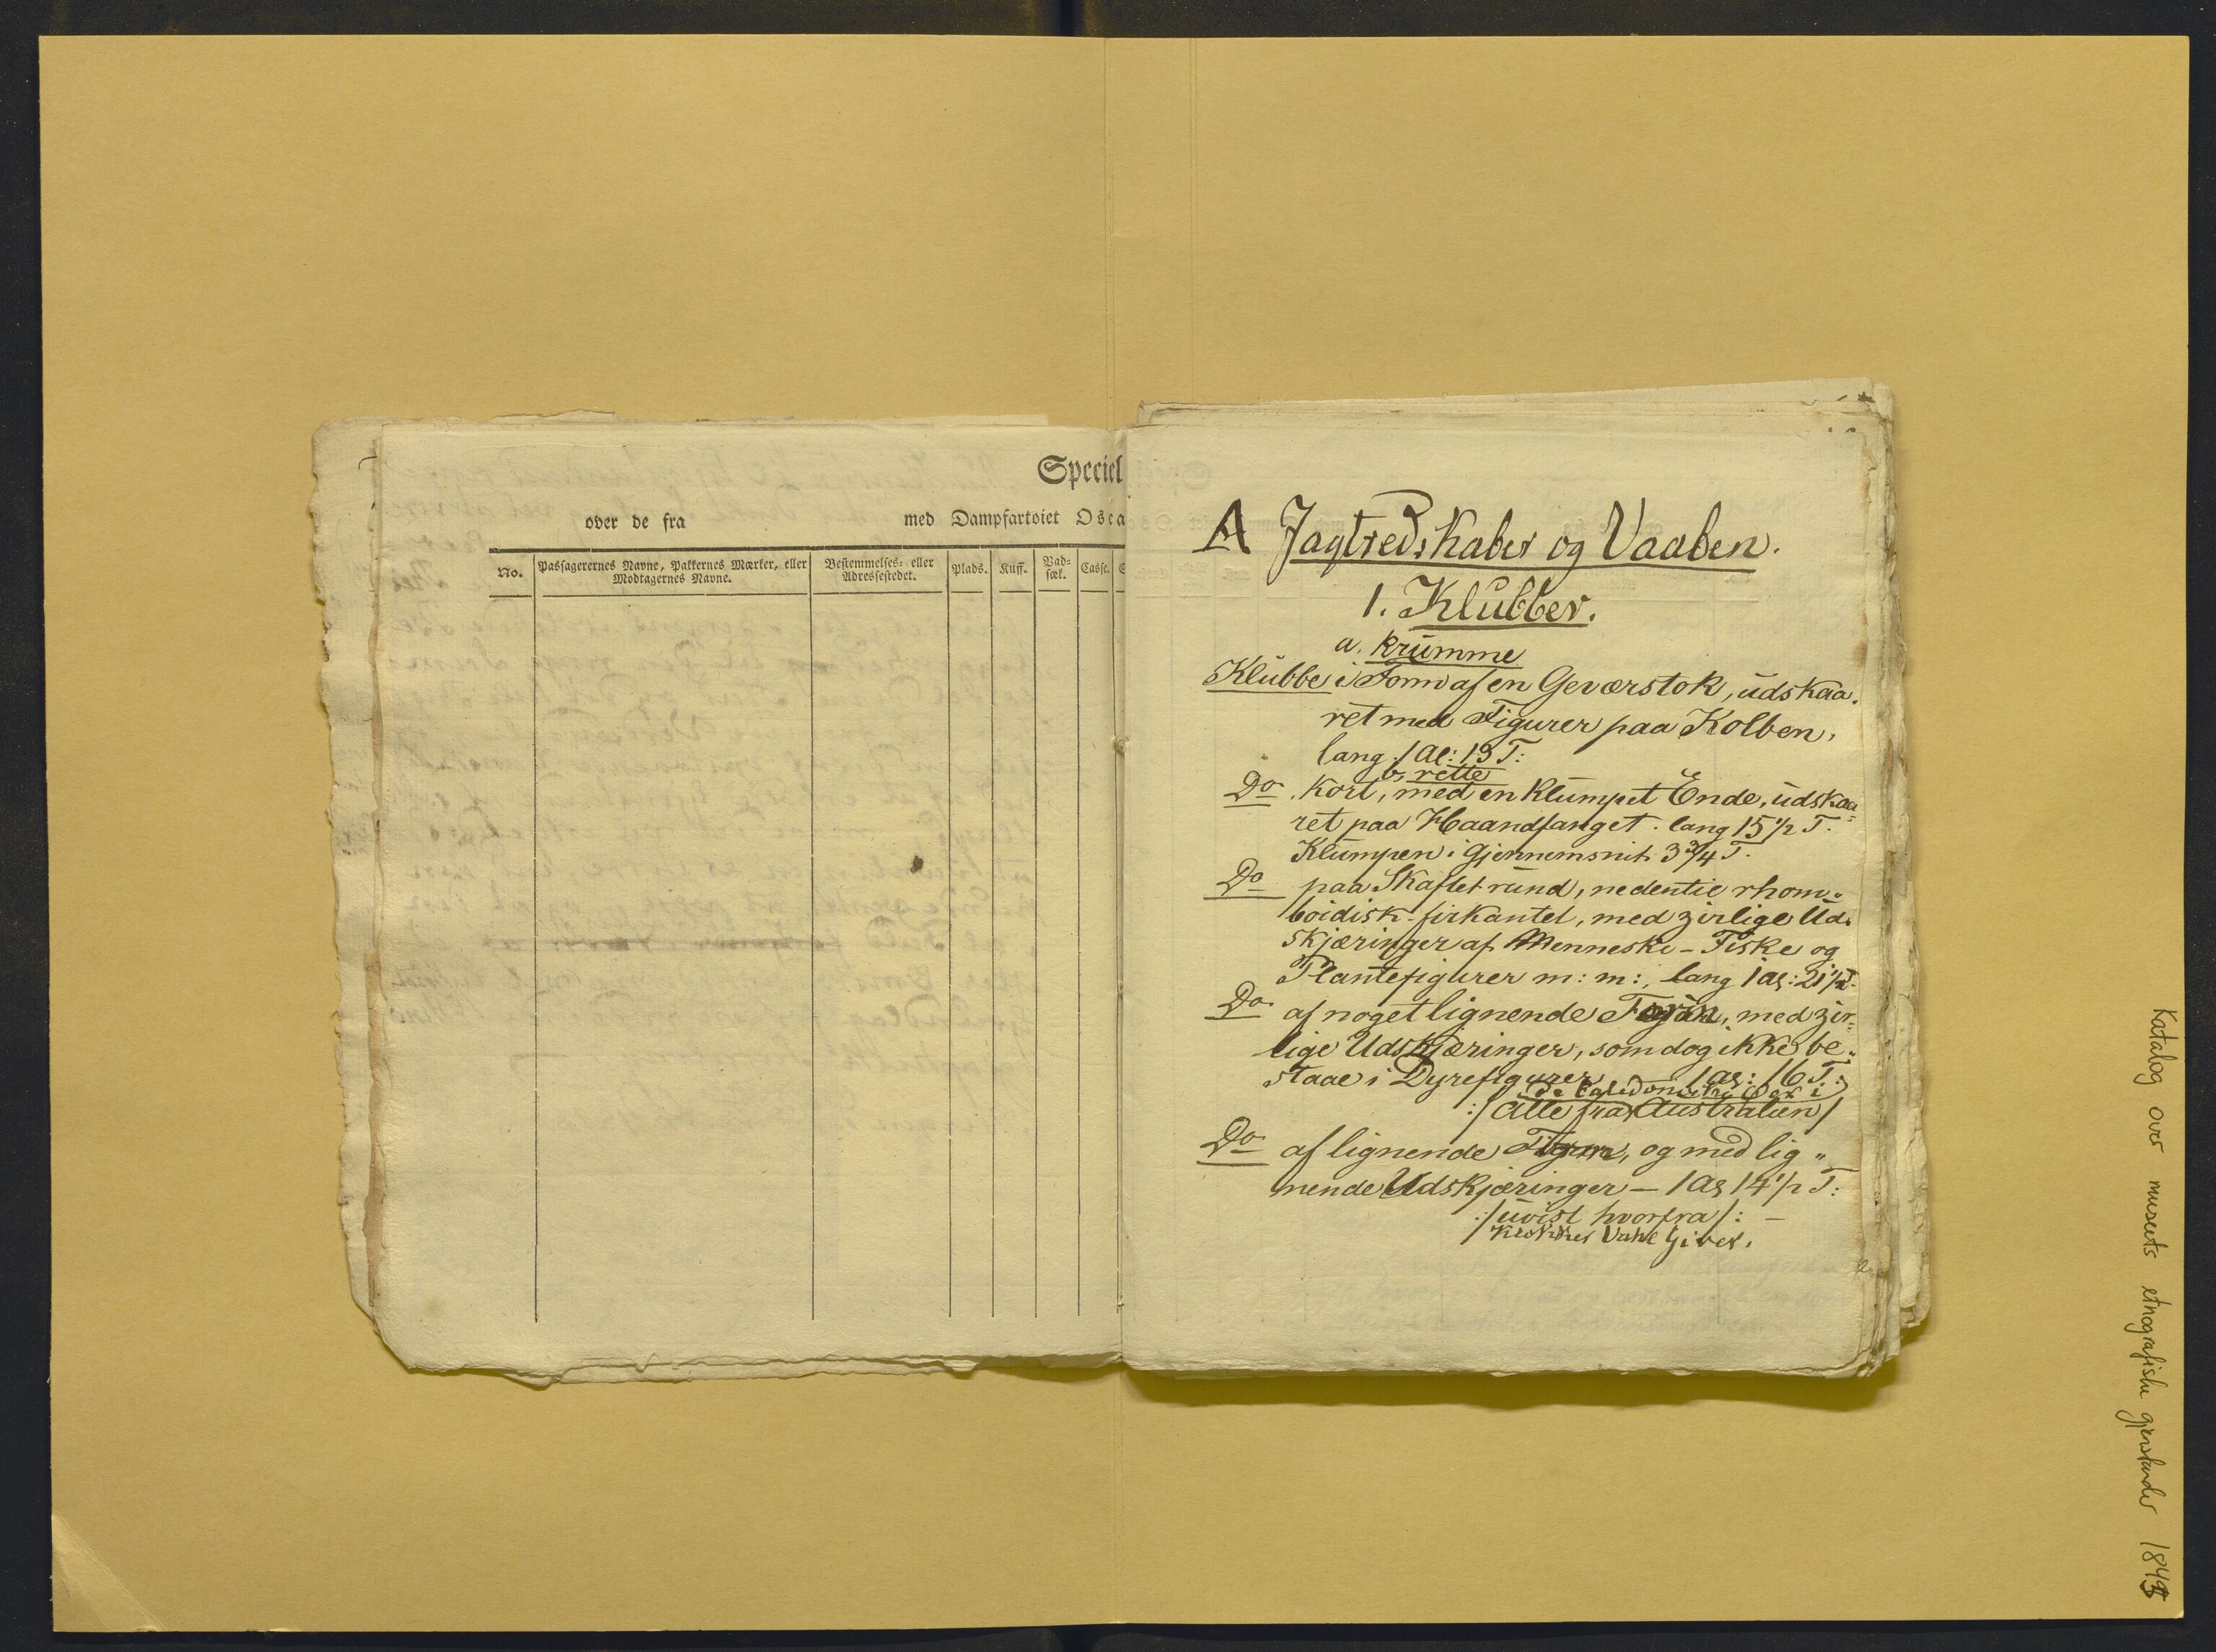 Speciel
over de fra med Dampfartoiet Osca
No.
Passagerernes Navne, Pakkernes Mærker, eller
Modtagernes Navne.
Bestemmelses- eller
Adressestedet.
Plads.
Kuff.
Vad-
sæk.
Casse.
A Jagtredskaber og Vaaben.
1. Klubber.
a. krumme
Klubbe i Form af en Geværstok, udskaa-
ret med Figurer paa Kolben,
lang 1 Al: 13 T:
b, rette
Do. Kort, med en klumpet Ende, udskaa-
ret paa Haandfanget. lang 15 1/2 T.
Klumpen i Gjennemsnit 3 3/4 T.
Do paa Skaftet rund, nedentil rhom-
boidisk-firkantet, med zirlige Ud-
skjæringer af Menneske- Fiske og
Plantefigurer m: m:, lang 1 al: 21 1/2 T.
Do af noget lignende Form, med zir-
lige Udskjæringer, som dog ikke be-
staae i Dyrefigurer 1 al: 16 T:
de Caledoniske Øer i
:/ Alle fra Australien /
Do af lignende Form, og med lig-
nende Udskjæringer — 1 al 14 1/2 T:
:/ uvist hvorfra /: —
2
Katalog over museets etnografiske gjenstander 184